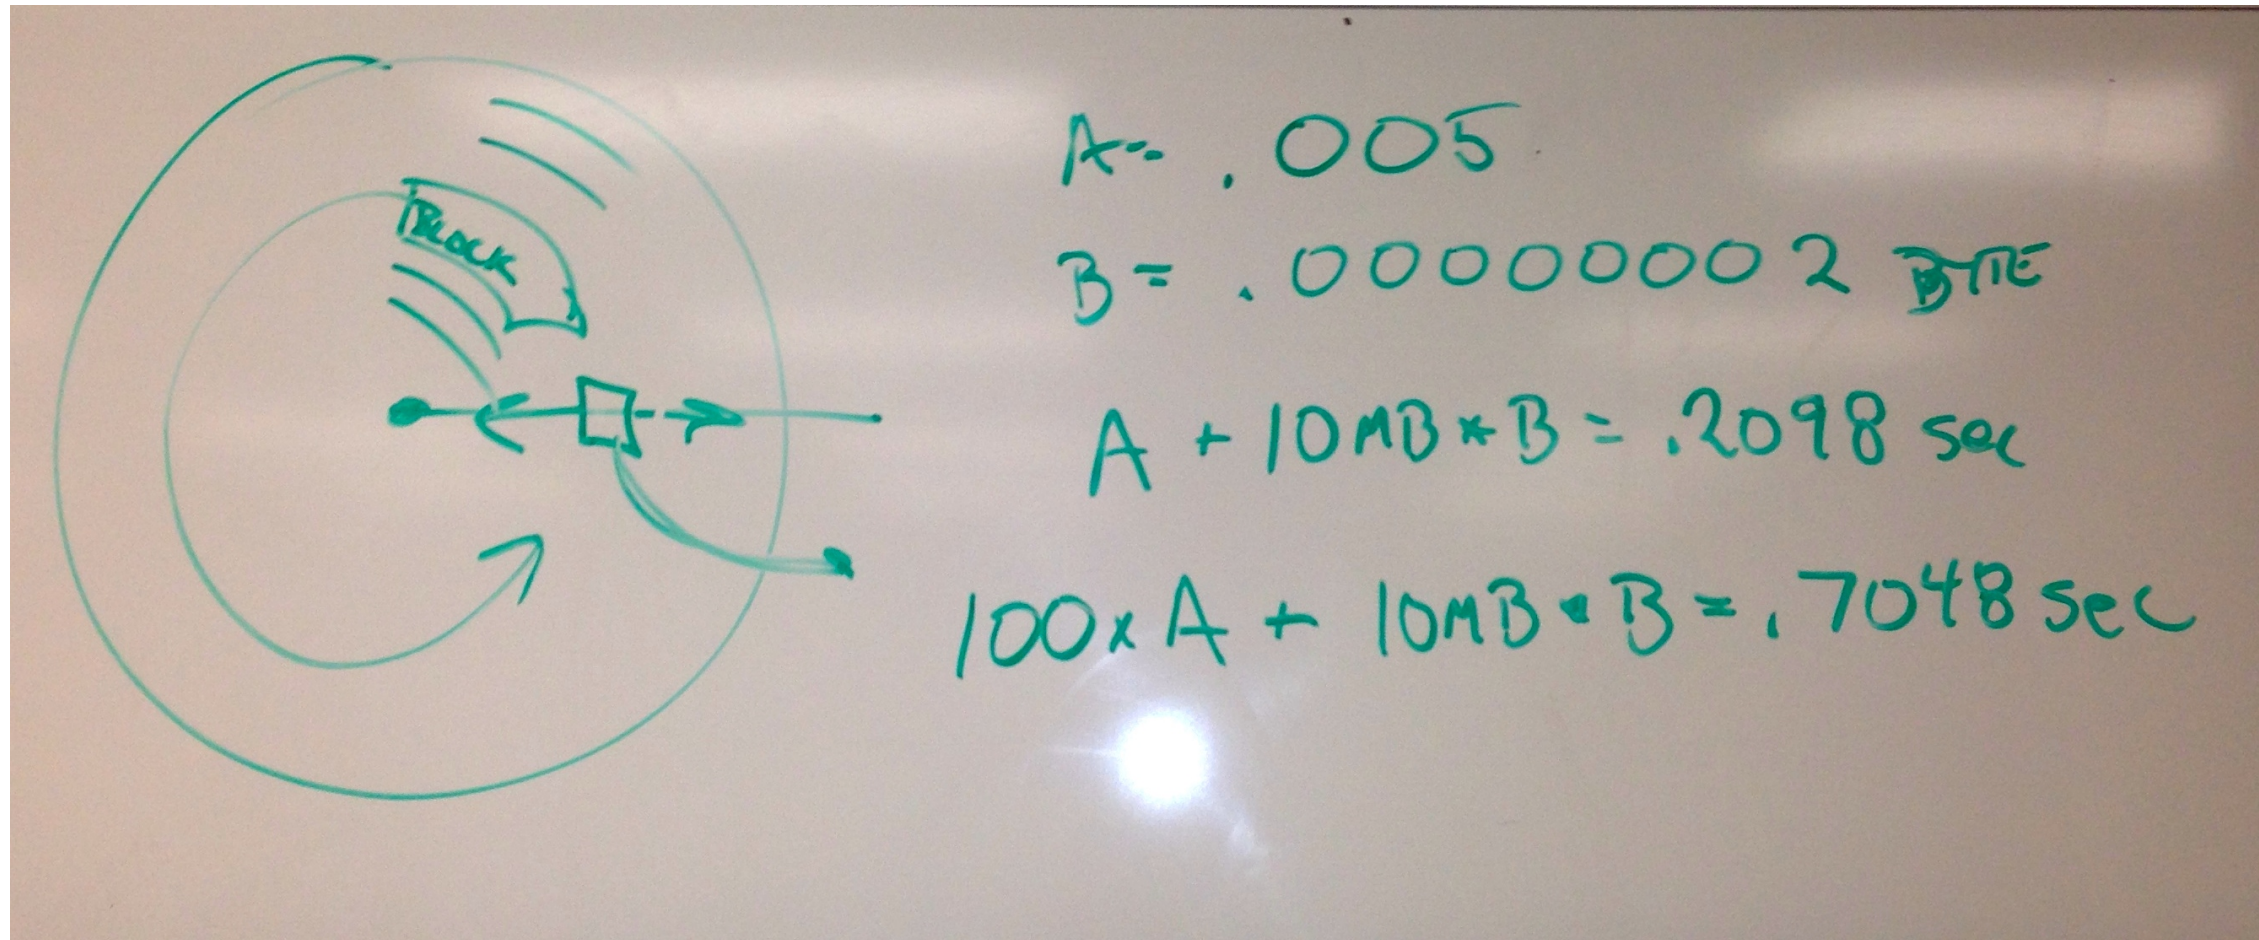 BLOCK
A= .005
B = .00000002 BYTE
A + 10MB * B = .2098 sec
100 x A + 10MB * B = .7048 sec